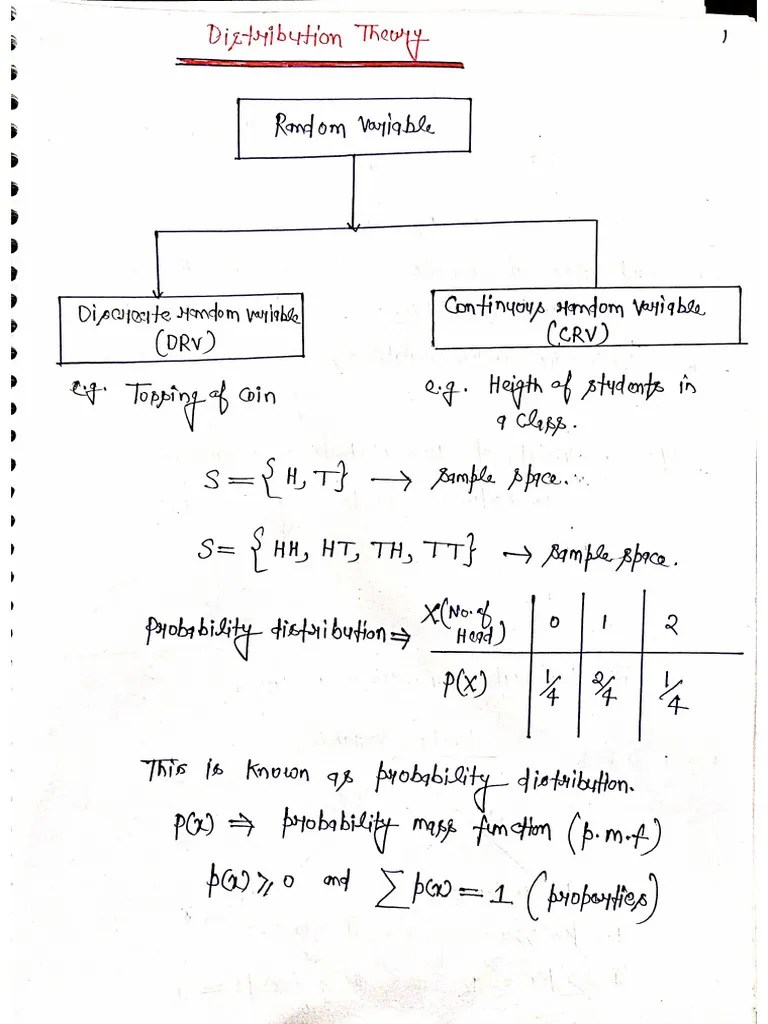 Distribution Theory
1
Random Variable
Discrete random variable
(DRV)
Continuous random variable
(CRV)
e.g. Tossing of coin
e.g. Heigth of students in
a class.
S = {H, T} → sample space.
S = {HH, HT, TH, TT} → sample space.
Probability distribution ⇒
X(No. of Head) 0 1 2
P(X) 1/4 2/4 1/4
This is known as probability distribution.
P(x) ⇒ probability mass function (p.m.f)
p(x) ⩾ 0 and ∑ p(x) = 1 (properties)